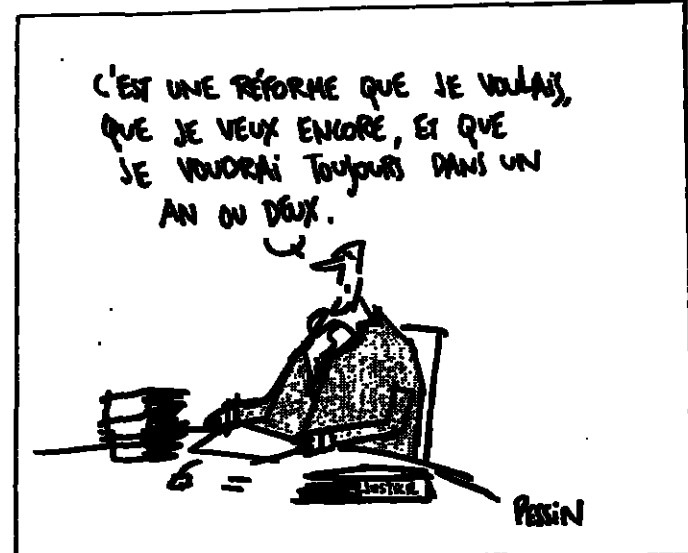 C'EST UNE RÉFORME QUE JE VOULAIS,
QUE JE VEUX ENCORE, ET QUE
JE VOUDRAI TOUJOURS DANS UN
AN OU DEUX.
JUSTICE
PESSIN